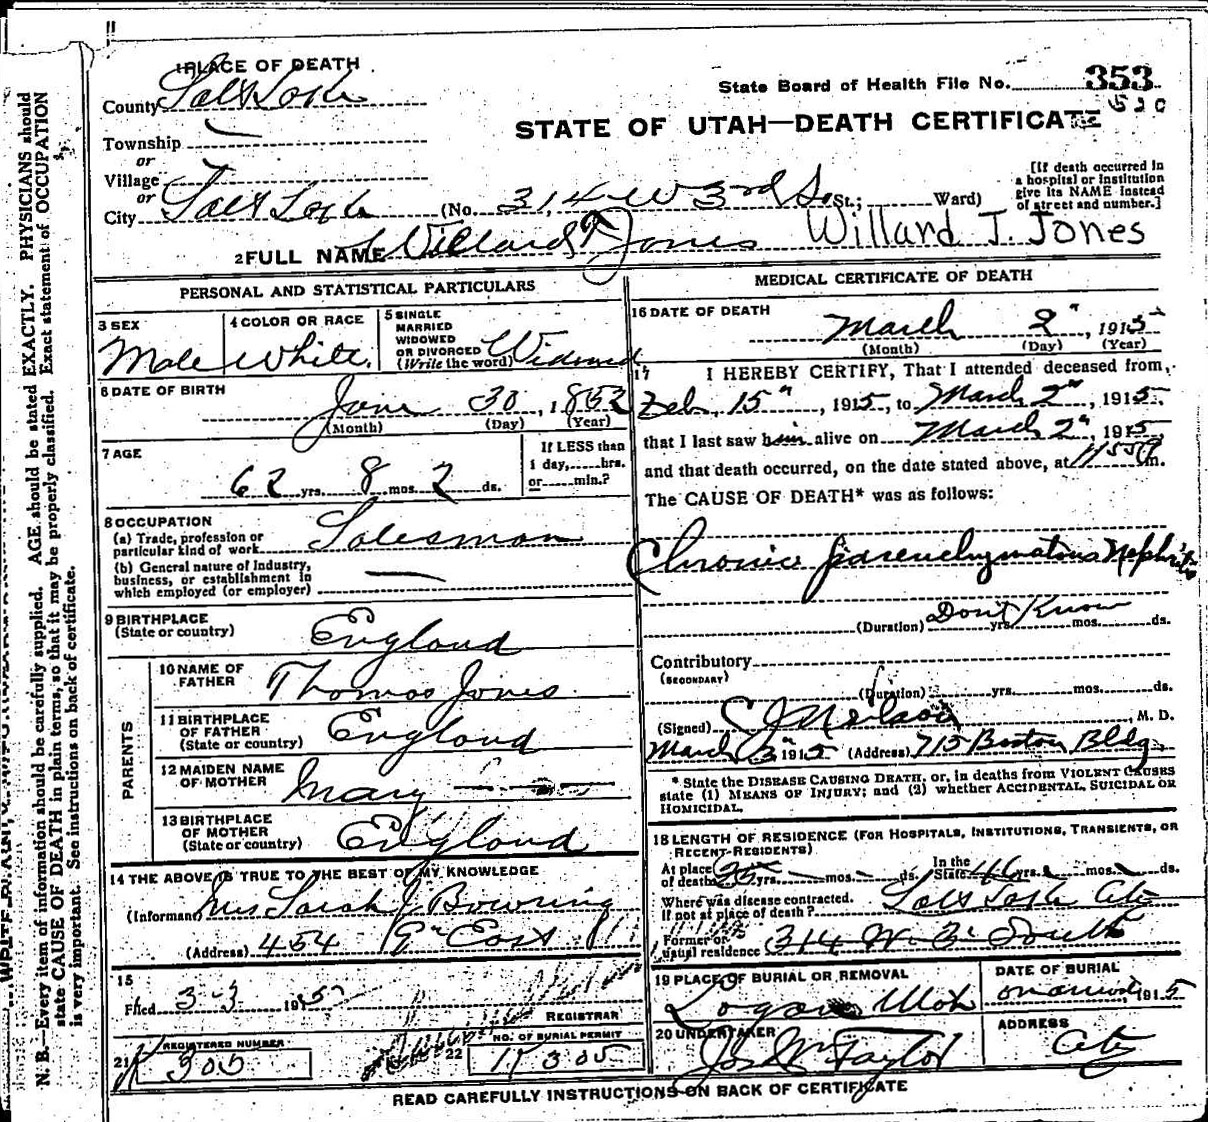 1 PLACE OF DEATH
County Salt Lake
Township
or
Village
or
City Salt Lake (No. 314 W 3rd So St.; Ward)
[If death occurred in
a hospital or institution
give its NAME instead
of street and number.]
State Board of Health File No. 353
520
STATE OF UTAH—DEATH CERTIFICATE
2 FULL NAME Willard J Jones Willard J. Jones
PERSONAL AND STATISTICAL PARTICULARS
3 SEX
Male
4 COLOR OR RACE
White.
5 SINGLE
MARRIED
WIDOWED
OR DIVORCED
(Write the word) Widowed
6 DATE OF BIRTH
June 30, 1852
(Month) (Day) (Year)
7 AGE
62 yrs. 8 mos. 2 ds.
If LESS than
1 day, hrs.
or min.?
8 OCCUPATION
(a) Trade, profession or
particular kind of work Salesman
(b) General nature of Industry,
business, or establishment in
which employed (or employer)
9 BIRTHPLACE
(State or country) England
PARENTS
10 NAME OF
FATHER Thomas Jones
11 BIRTHPLACE
OF FATHER
(State or country) England
12 MAIDEN NAME
OF MOTHER Mary
13 BIRTHPLACE
OF MOTHER
(State or country) England
14 THE ABOVE IS TRUE TO THE BEST OF MY KNOWLEDGE
(Informant Mrs Sarah J. Bowring
(Address) 454 East
15
Filed 3-3 1915
REGISTRAR
21 REGISTERED NUMBER
305
22 NO. OF BURIAL PERMIT
305
MEDICAL CERTIFICATE OF DEATH
16 DATE OF DEATH
March 2", 1915
(Month) (Day) (Year)
17 I HEREBY CERTIFY, That I attended deceased from,
Feb. 15", 1915, to March 2", 1915.
that I last saw him alive on March 2", 1915
and that death occurred, on the date stated above, at 1155 m.
The CAUSE OF DEATH* was as follows:
Chronic parenchymatous Nephritis
(Duration) Don't Know yrs. mos. ds.
Contributory
(SECONDARY)
(Duration) yrs. mos. ds.
(Signed) C J Neilson, M. D.
March 3" 1915 (Address) 715 Boston Bldg
* State the DISEASE CAUSING DEATH, or, in deaths from VIOLENT CAUSES
state (1) MEANS OF INJURY; and (2) whether ACCIDENTAL, SUICIDAL OR
HOMICIDAL.
18 LENGTH OF RESIDENCE (FOR HOSPITALS, INSTITUTIONS, TRANSIENTS, OR
RECENT RESIDENTS)
At place
of death 35 yrs. mos. ds. In the
State 46 yrs. mos. ds.
Where was disease contracted.
If not at place of death? Salt Lake City
Former or
usual residence 314 W. 3" South
19 PLACE OF BURIAL OR REMOVAL
Logan Utah
DATE OF BURIAL
on arrival, 1915
20 UNDERTAKER
Jos Wm Taylor
ADDRESS
City
READ CAREFULLY INSTRUCTIONS ON BACK OF CERTIFICATE
N. B.—Every item of information should be carefully supplied. AGE should be stated EXACTLY. PHYSICIANS should
state CAUSE OF DEATH in plain terms, so that it may be properly classified. Exact statement of OCCUPATION
is very important. See instructions on back of certificate.